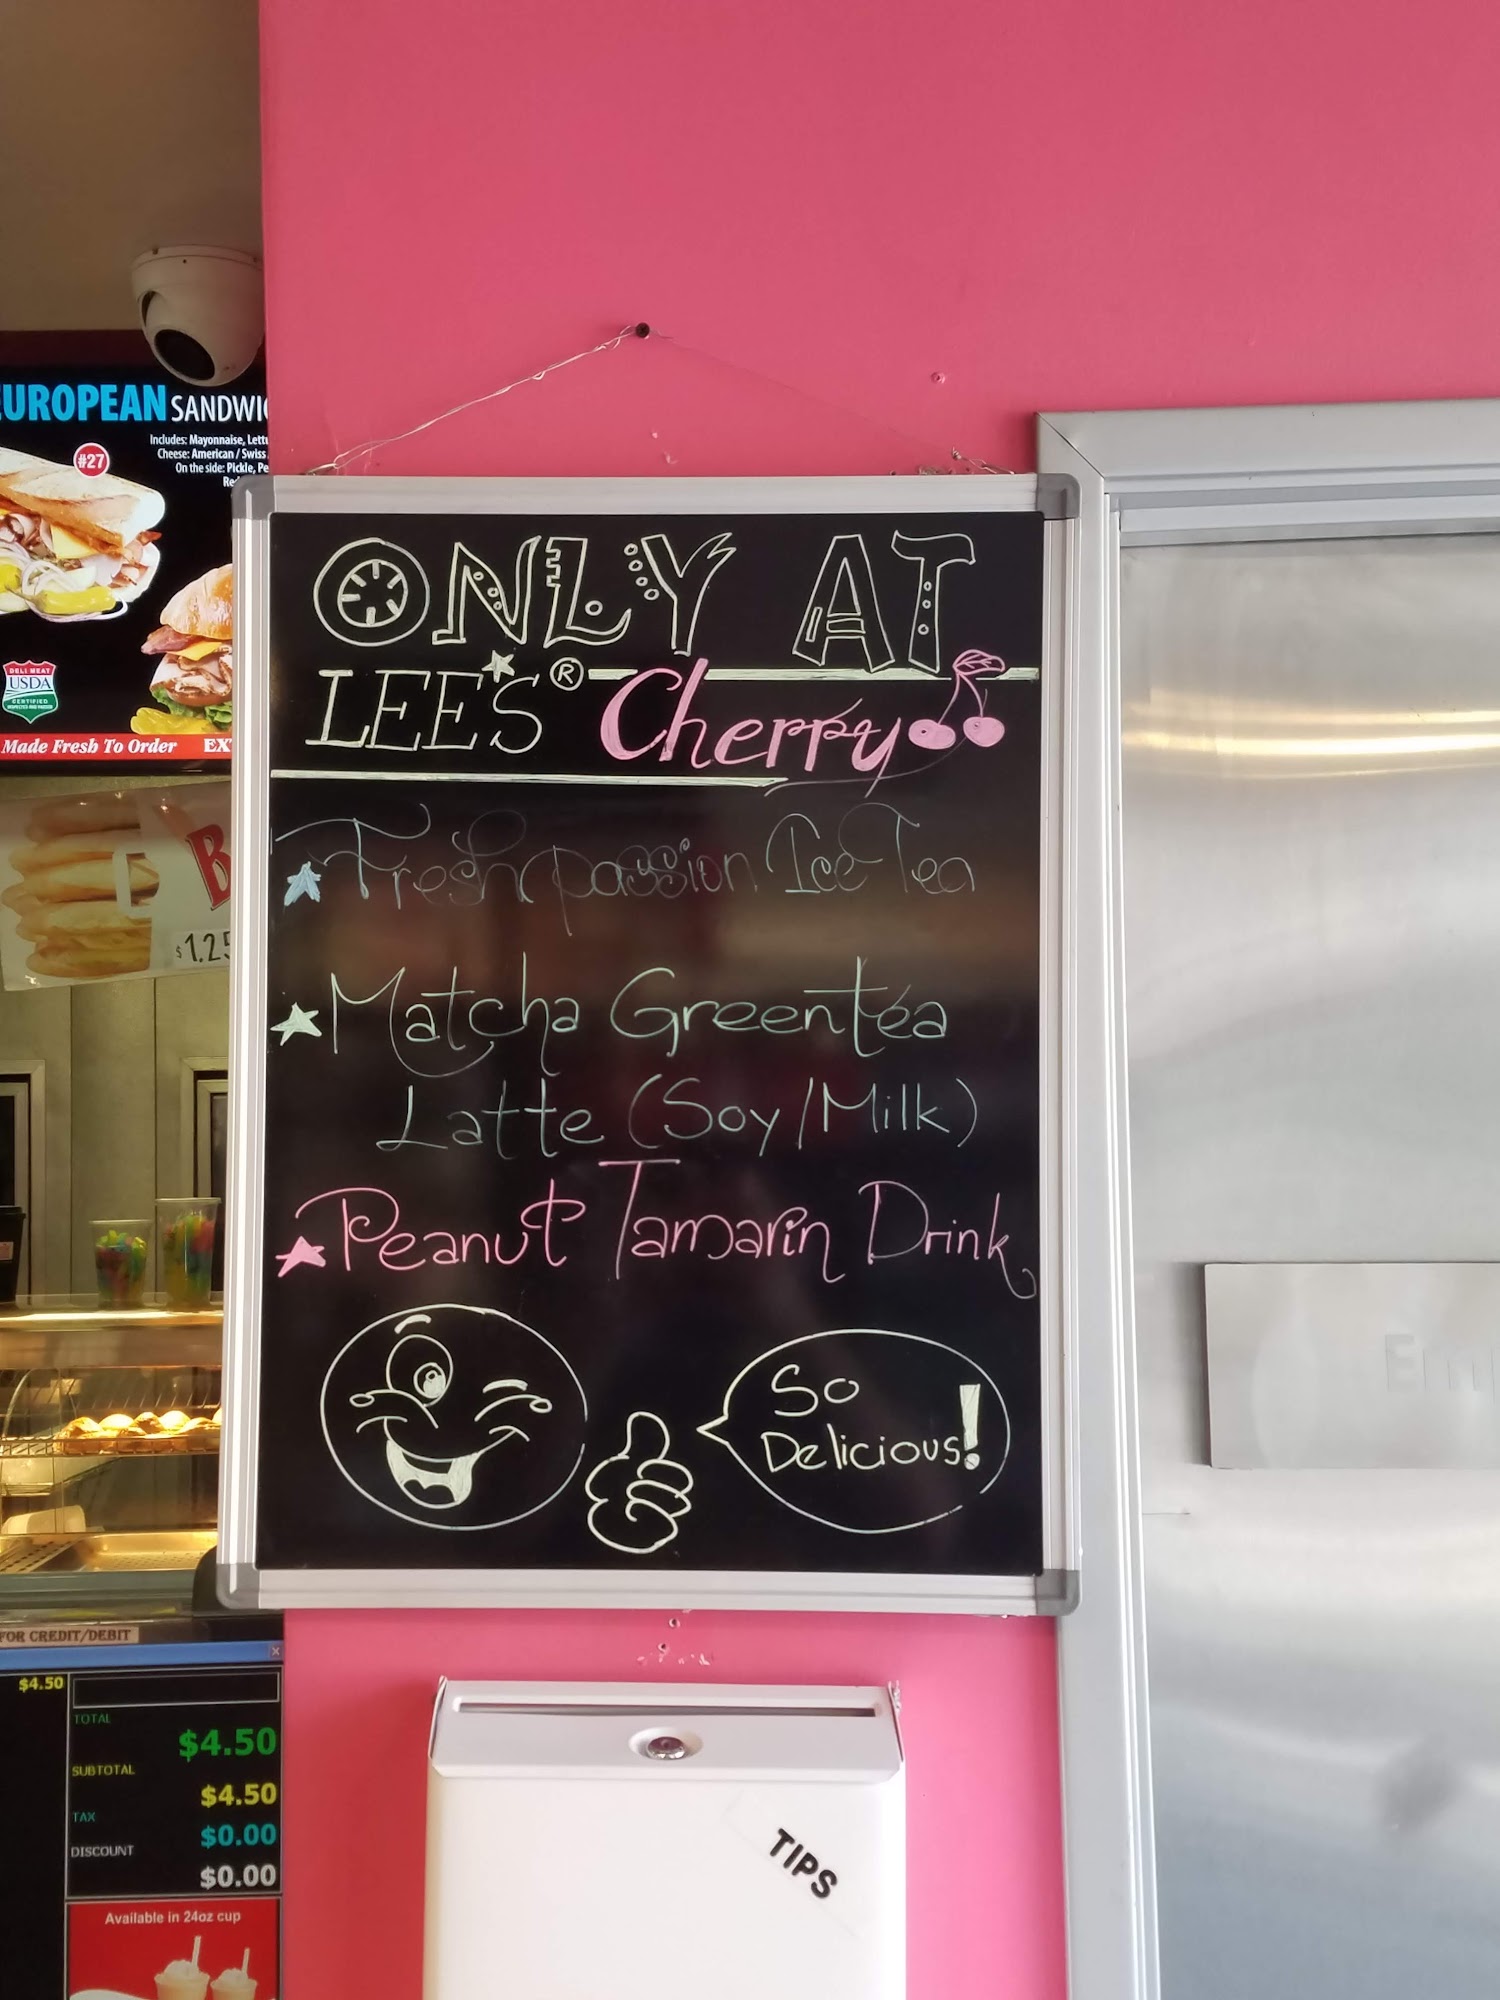 EUROPEAN SANDWIC
Includes: Mayonnaise, Lettu
Cheese: American / Swiss
On the side: Pickle, Pe
#27
DELI MEAT
USDA
CERTIFIED
Made Fresh To Order EX
B
$1.25
ONLY AT
LEE'S® Cherry
Fresh passion Ice Tea
Matcha Green tea
Latte (Soy/Milk)
Peanut Tamarin Drink
So
Delicious!
FOR CREDIT/DEBIT
$4.50
TOTAL
$4.50
SUBTOTAL
$4.50
TAX
$0.00
DISCOUNT
$0.00
Available in 24oz cup
TIPS
Em